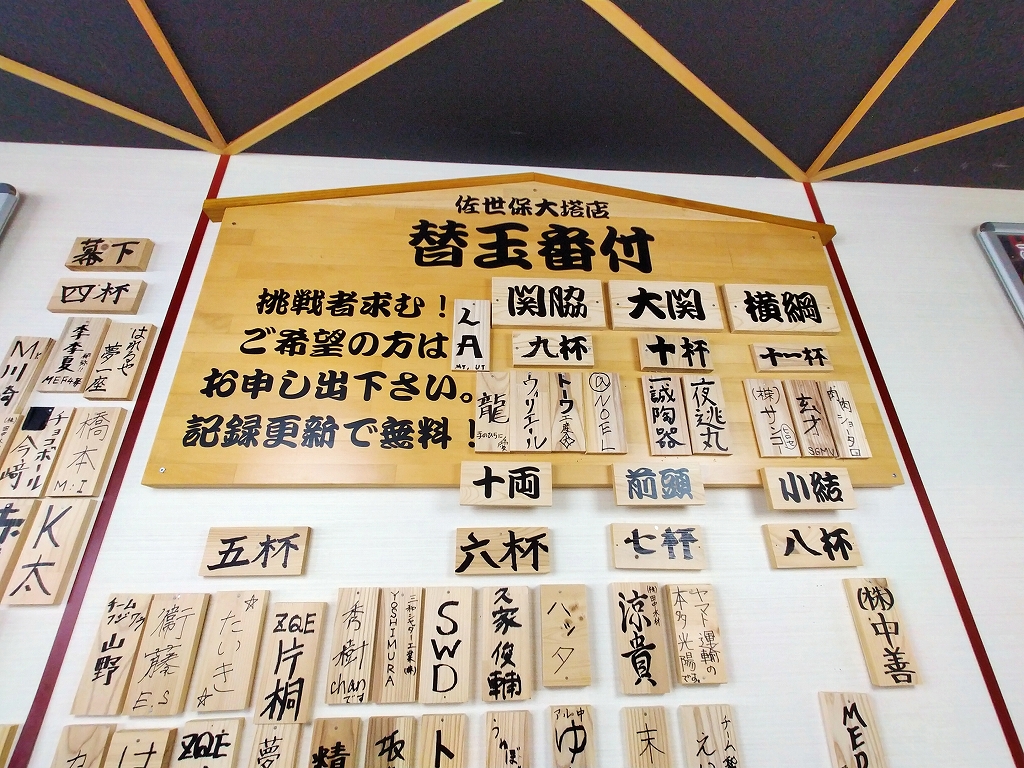 佐世保大塔店
替玉番付
挑戦者求む！
ご希望の方は
お申し出下さい。
記録更新で無料！
横綱
十一杯
(株)サンコー
玄才
SGMU
肉肉ショータロ
大関
十杯
夜逃丸
誠陶器
関脇
九杯
@NOEL
トーワ工産
ウィリエール
龍
LA
小結
八杯
(株)中善
前頭
七杯
ヤマト運輸の
本多光陽です。
涼貴
末
十両
六杯
ハッタ
久家俊輔
SWD
YOSHIMURA
秀樹chanです
アル中
ゆ
ト
坂
精
五杯
ZQE
片桐
☆たいき☆
衛藤
E.S
山野
夢
ZQE
け
カ
幕下
四杯
はれるや
夢一座
季季夏
MEF4年
M川崎
橋本
M:I
チョコボール
今﨑
K太